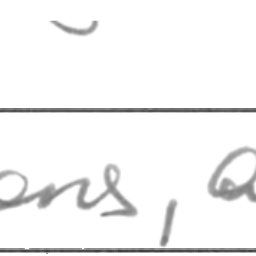 ons, a